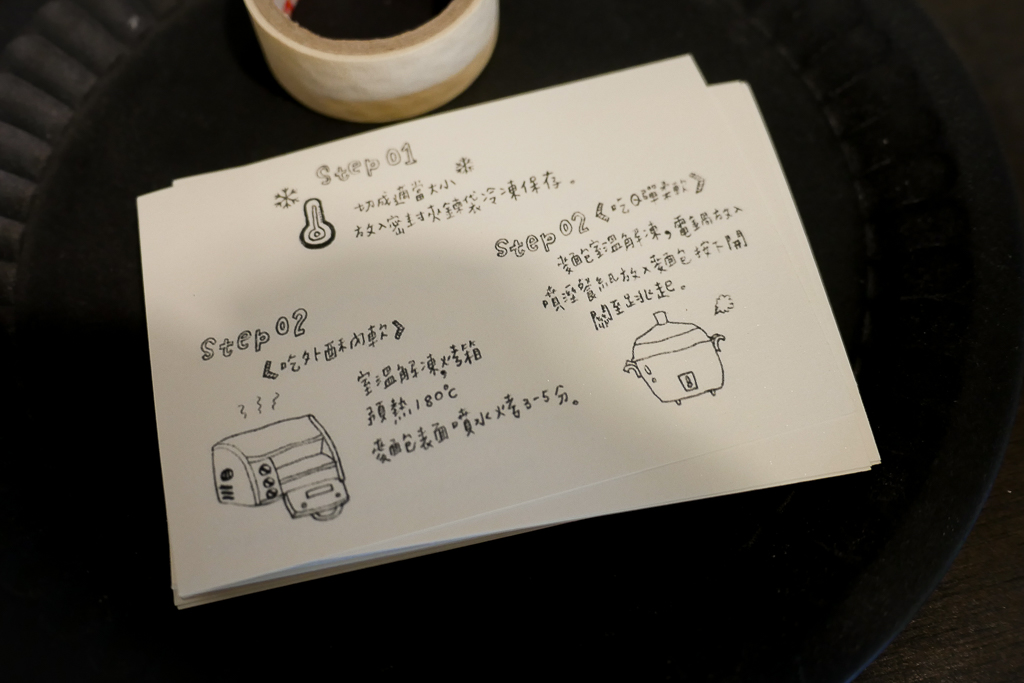 Step 01
切成適當大小
放入密封夾鍊袋冷凍保存。
Step 02《吃Q彈柔軟》
麥麵包室溫解凍,電鍋放入
噴溼餐紙放入麥麵包按下開
關至跳起。
Step 02
《吃外酥內軟》
室溫解凍,烤箱
預熱180℃
麥麵包表面噴水烤3-5分。